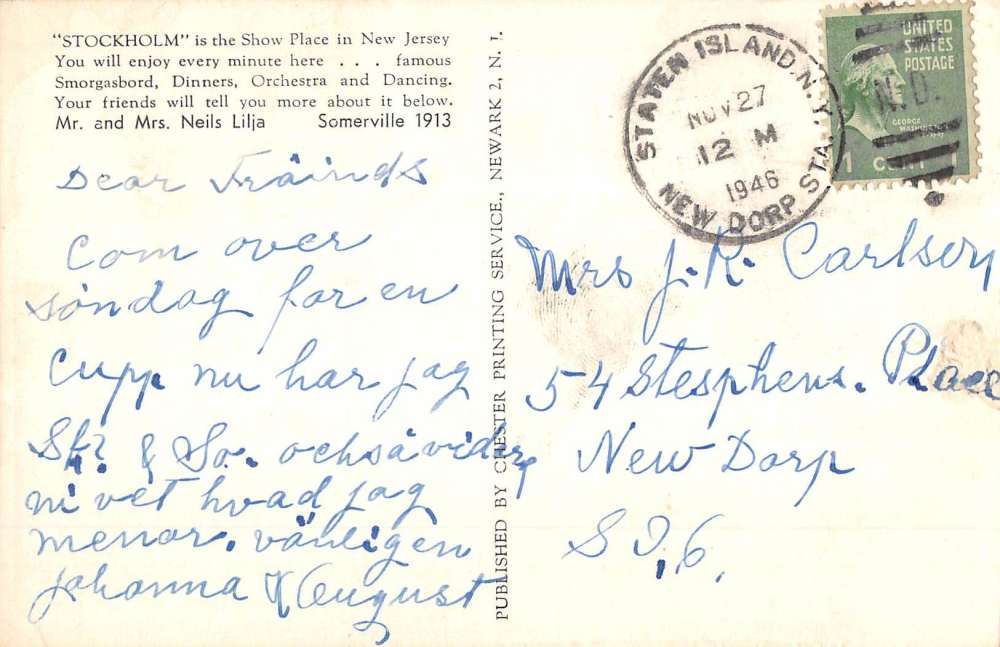 "STOCKHOLM" is the Show Place in New Jersey
You will enjoy every minute here . . . famous
Smorgasbord, Dinners, Orchestra and Dancing.
Your friends will tell you more about it below.
Mr. and Mrs. Neils Lilja Somerville 1913
Dear Fräinds
Com over
söndag for en
Cupp nu har jag
& So. ochsåvidare
ni vet hvad jag
menar. vänligen
Johanna & August
PUBLISHED BY CHESTER PRINTING SERVICE., NEWARK 2, N. J.
STATEN ISLAND, N.Y.
NOV 27
12 M
1946
NEW DORP STA.
UNITED
STATES
POSTAGE
N.D.
GEORGE
WASHINGTON
1
Mrs J. R. Carlson
54 Stesphens. Place
New Dorp
S I, 6,